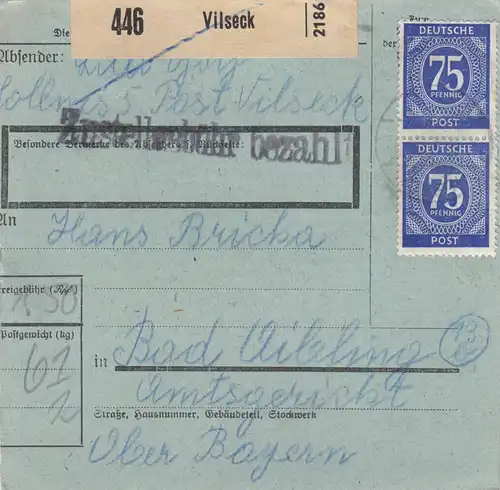 446 Vilseck 2186
Die
Absender:
5 Post Vilseck
Zustellgebühr bezahlt
Besondere Vermerke des Absenders s. Rückseite:
An Hans Bricka
Freigebühr (Rpf.)
1.50
Postgewicht (kg)
in Bad Aibling
Amtsgericht
Straße, Hausnummer, Gebäudeteil, Stockwerk
Ober Bayern
der
DEUTSCHE
75
PFENNIG
POST
DEUTSCHE
75
PFENNIG
POST